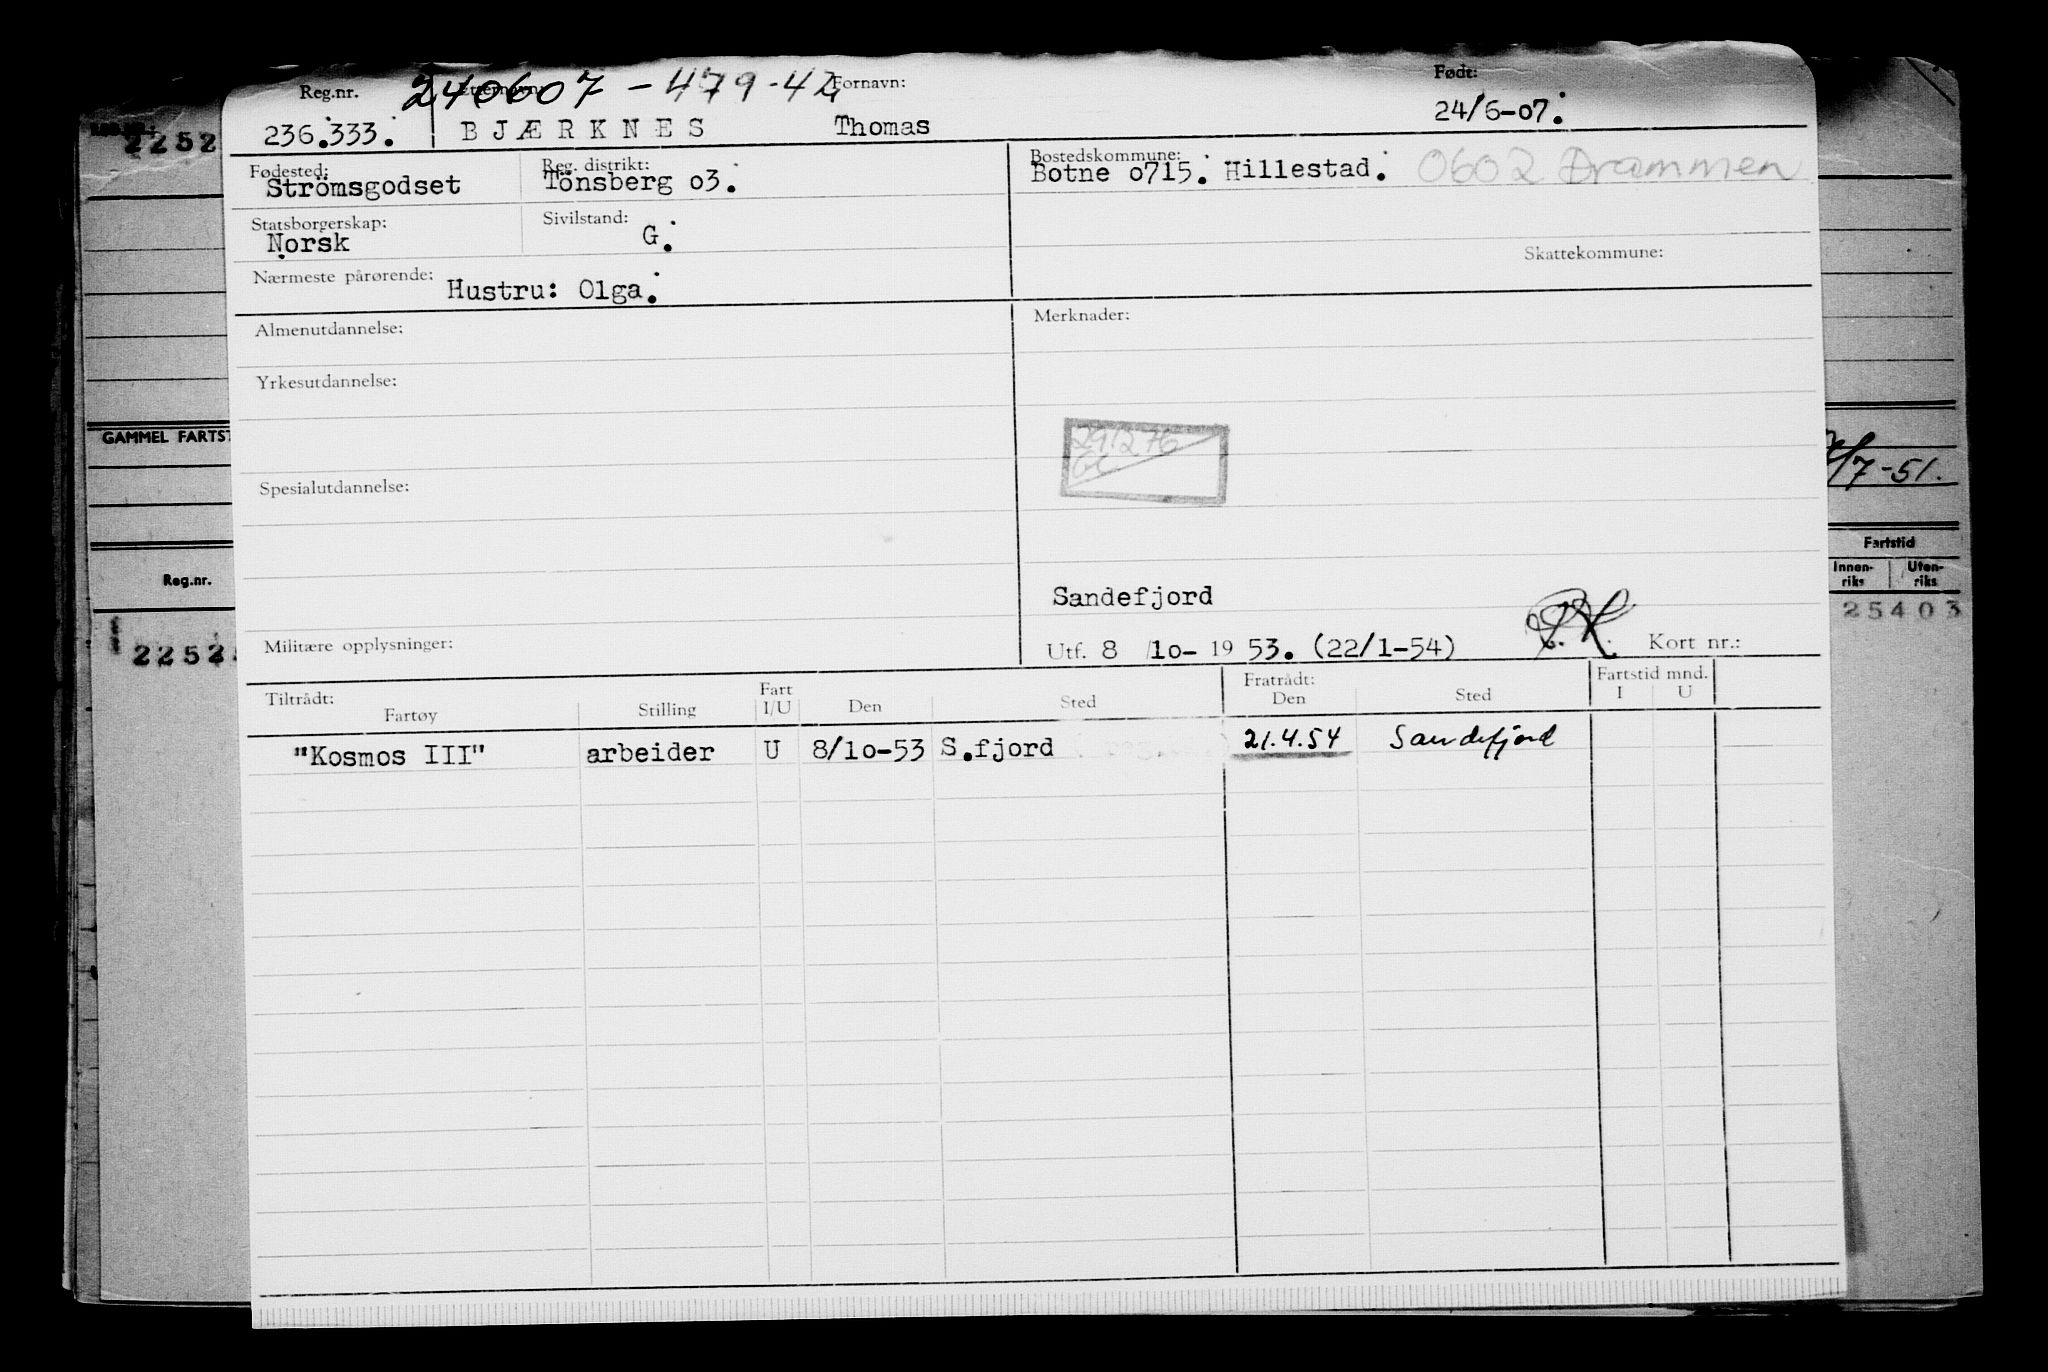 Reg.nr. 240607-479-42 Fornavn: Født:
236.333. BJÆRKNES Thomas 24/6-07.
Fødested: Reg. distrikt: Bostedskommune:
Strömsgodset Tönsberg o3. Botne o715. Hillestad. 0602 Drammen
Statsborgerskap: Sivilstand:
Norsk G.
Skattekommune:
Nærmeste pårørende: Hustru: Olga.
Almenutdannelse: Merknader:
Yrkesutdannelse:
GAMMEL
291276
/7-51.
Spesialutdannelse:
Fartstid
Reg.nr. Innen-riks Uten-riks
Sandefjord 25403
Militære opplysninger: Utf. 8 /1o- 19 53. (22/1-54) Kort nr.:
Tiltrådt: Fart Fratrådt: Fartstid mnd.
Fartøy Stilling I/U Den Sted Den Sted I U
"Kosmos III" arbeider U 8/1o-53 S.fjord 21.4.54 Sandefjord